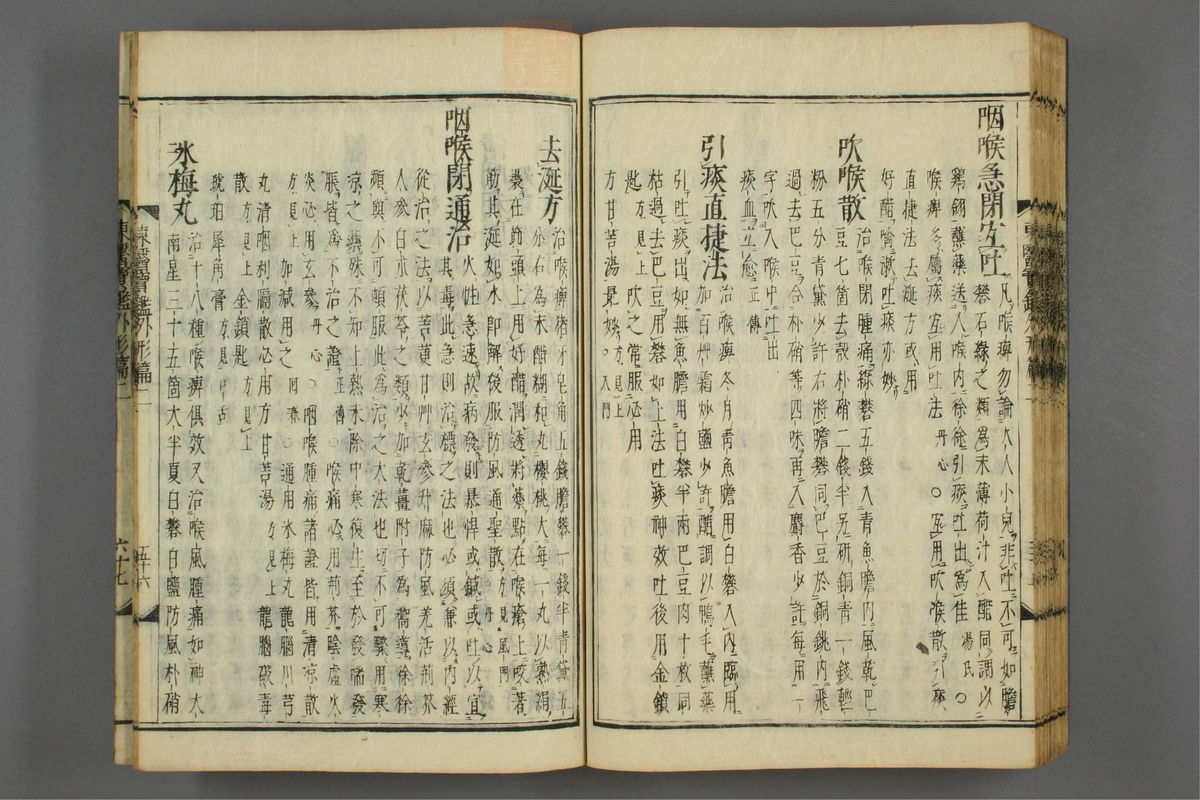 咽喉急閉宜吐 凡喉痺勿論大人小兒非吐不可如膽
礬石綠之類為末薄荷汁入醋同調以
鷄翎蘸藥送入喉內徐徐引痰吐出為佳 湯氏 ○
喉痺多屬痰宜用吐法 丹心 ○宜用吹喉散引痰
直捷法去涎方或用
好醋喻漱吐痰亦妙
吹喉散 治喉閉腫痛綠礬五錢入青魚膽內風乾巴
豆七箇去殼朴硝二錢半另研銅青一錢輕
粉五分青黛少許右將膽礬同巴豆於銅銚內飛
過去巴豆合朴硝等四味再入麝香少許每用一
字吹入喉中吐出
痰血立愈 正傳
引痰直捷法 治喉痺冬月靑魚膽用白礬入內臨用
加百艸霜炒鹽少許醋調以鴨毛蘸藥
引吐痰出如無魚膽用白礬半兩巴豆肉十枚同
枯過去巴豆用礬如上法吐痰神效吐後用金鎖
匙 方見上 吹之常服必用
方甘苦湯 方見上 入門
去涎方 治喉痺猪牙皂角五錢膽礬一錢半青黛五
分右為末醋糊和丸櫻桃大每一丸以熟絹
裹在筯頭上用好醋潤透將藥點在喉瘡上咬著
筯其涎如水卽解後服防風通聖散 方見風門 丹心
咽喉閉通治 火性急速故病發則暴悍或鍼或吐以宜
其毒此急則治標之法也必須兼以內經
從治之法以菩薆甘艸玄參升麻防風羌活荊芥
人參白朮茯苓之類少加乾薑附子為嚮導徐徐
頻與不可頓服此為治之大法也切不可驟用寒
凉之藥殊不知上熱未除中寒復生至於發喘發
脹皆為不治之證 正傳 ○喉痛必用荊芥陰虛火
炎必用玄參 丹心 ○咽喉腫痛諸證皆用清凉散
方見上 加減用之 回春 ○通用氷梅丸龍腦川芎
丸清咽利膈散必用方甘苦湯 方見上 龍腦破毒
散 方見上 金鎖匙 方見上
琥珀犀角膏 方見口舌
氷梅丸 治十八種喉痺俱效又治喉風腫痛如神大
南星三十五箇大半夏白礬白鹽防風朴硝
東醫寶鑑外形篇二